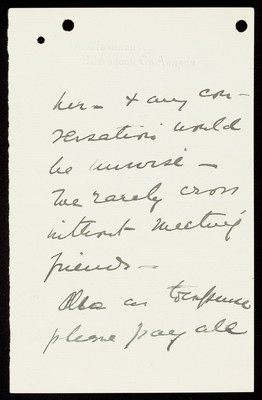 her – & any con-
versation would
be unwise –
We rarely cross
without meeting
friends –
Also as to expense
please pay all